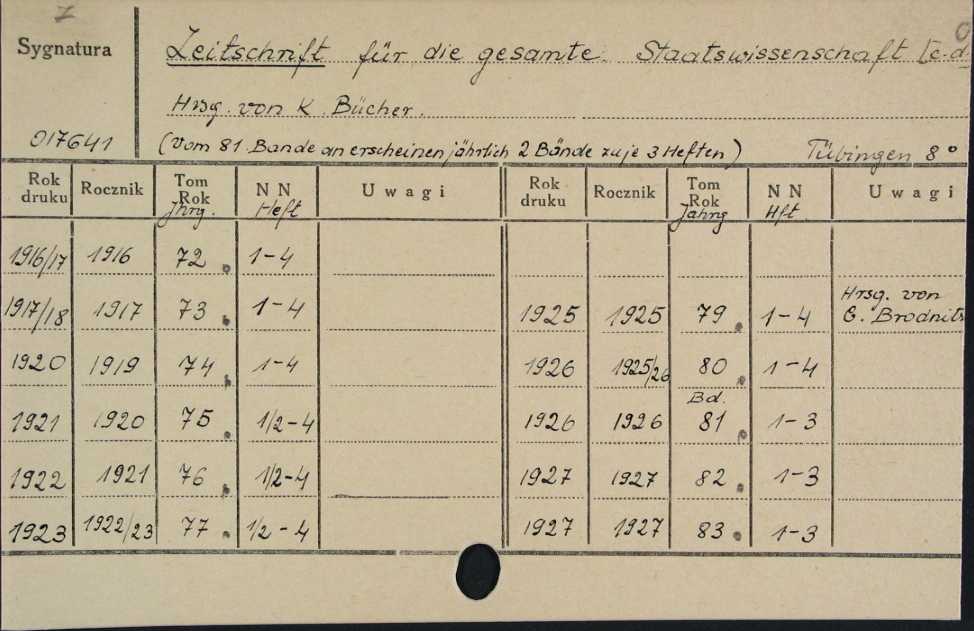 Z
Sygnatura
Zeitschrift für die gesamte Staatswissenschaft [c-d
Hrsg. von K. Bücher.
017641
(Vom 81 Bande an erscheinen jährlich 2 Bände zu je 3 Heften) Tübingen 8°
Rok druku Rocznik Tom Rok Jhrg. NN Heft Uwagi Rok druku Rocznik Tom Rok Jahrg NN Hft. Uwagi
1916/17 1916 72 1-4
1917/18 1917 73 1-4 1925 1925 79 1-4 Hrsg. von G. Brodnitz
1920 1919 74 1-4 1926 1925/26 80 1-4
1921 1920 75 1/2-4 1926 1926 Bd. 81 1-3
1922 1921 76 1/2-4 1927 1927 82 1-3
1923 1922/23 77 1/2-4 1927 1927 83 1-3